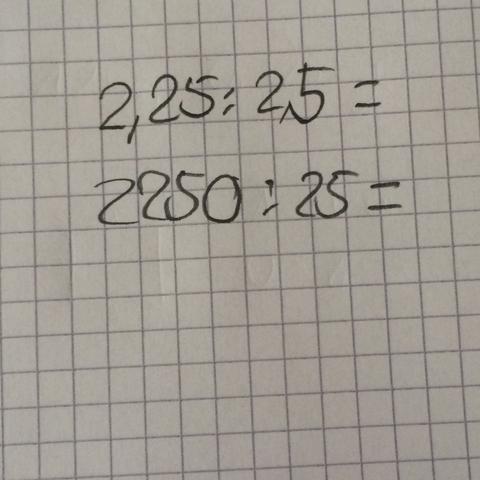 2,25 : 2,5 =
2250 : 25 =